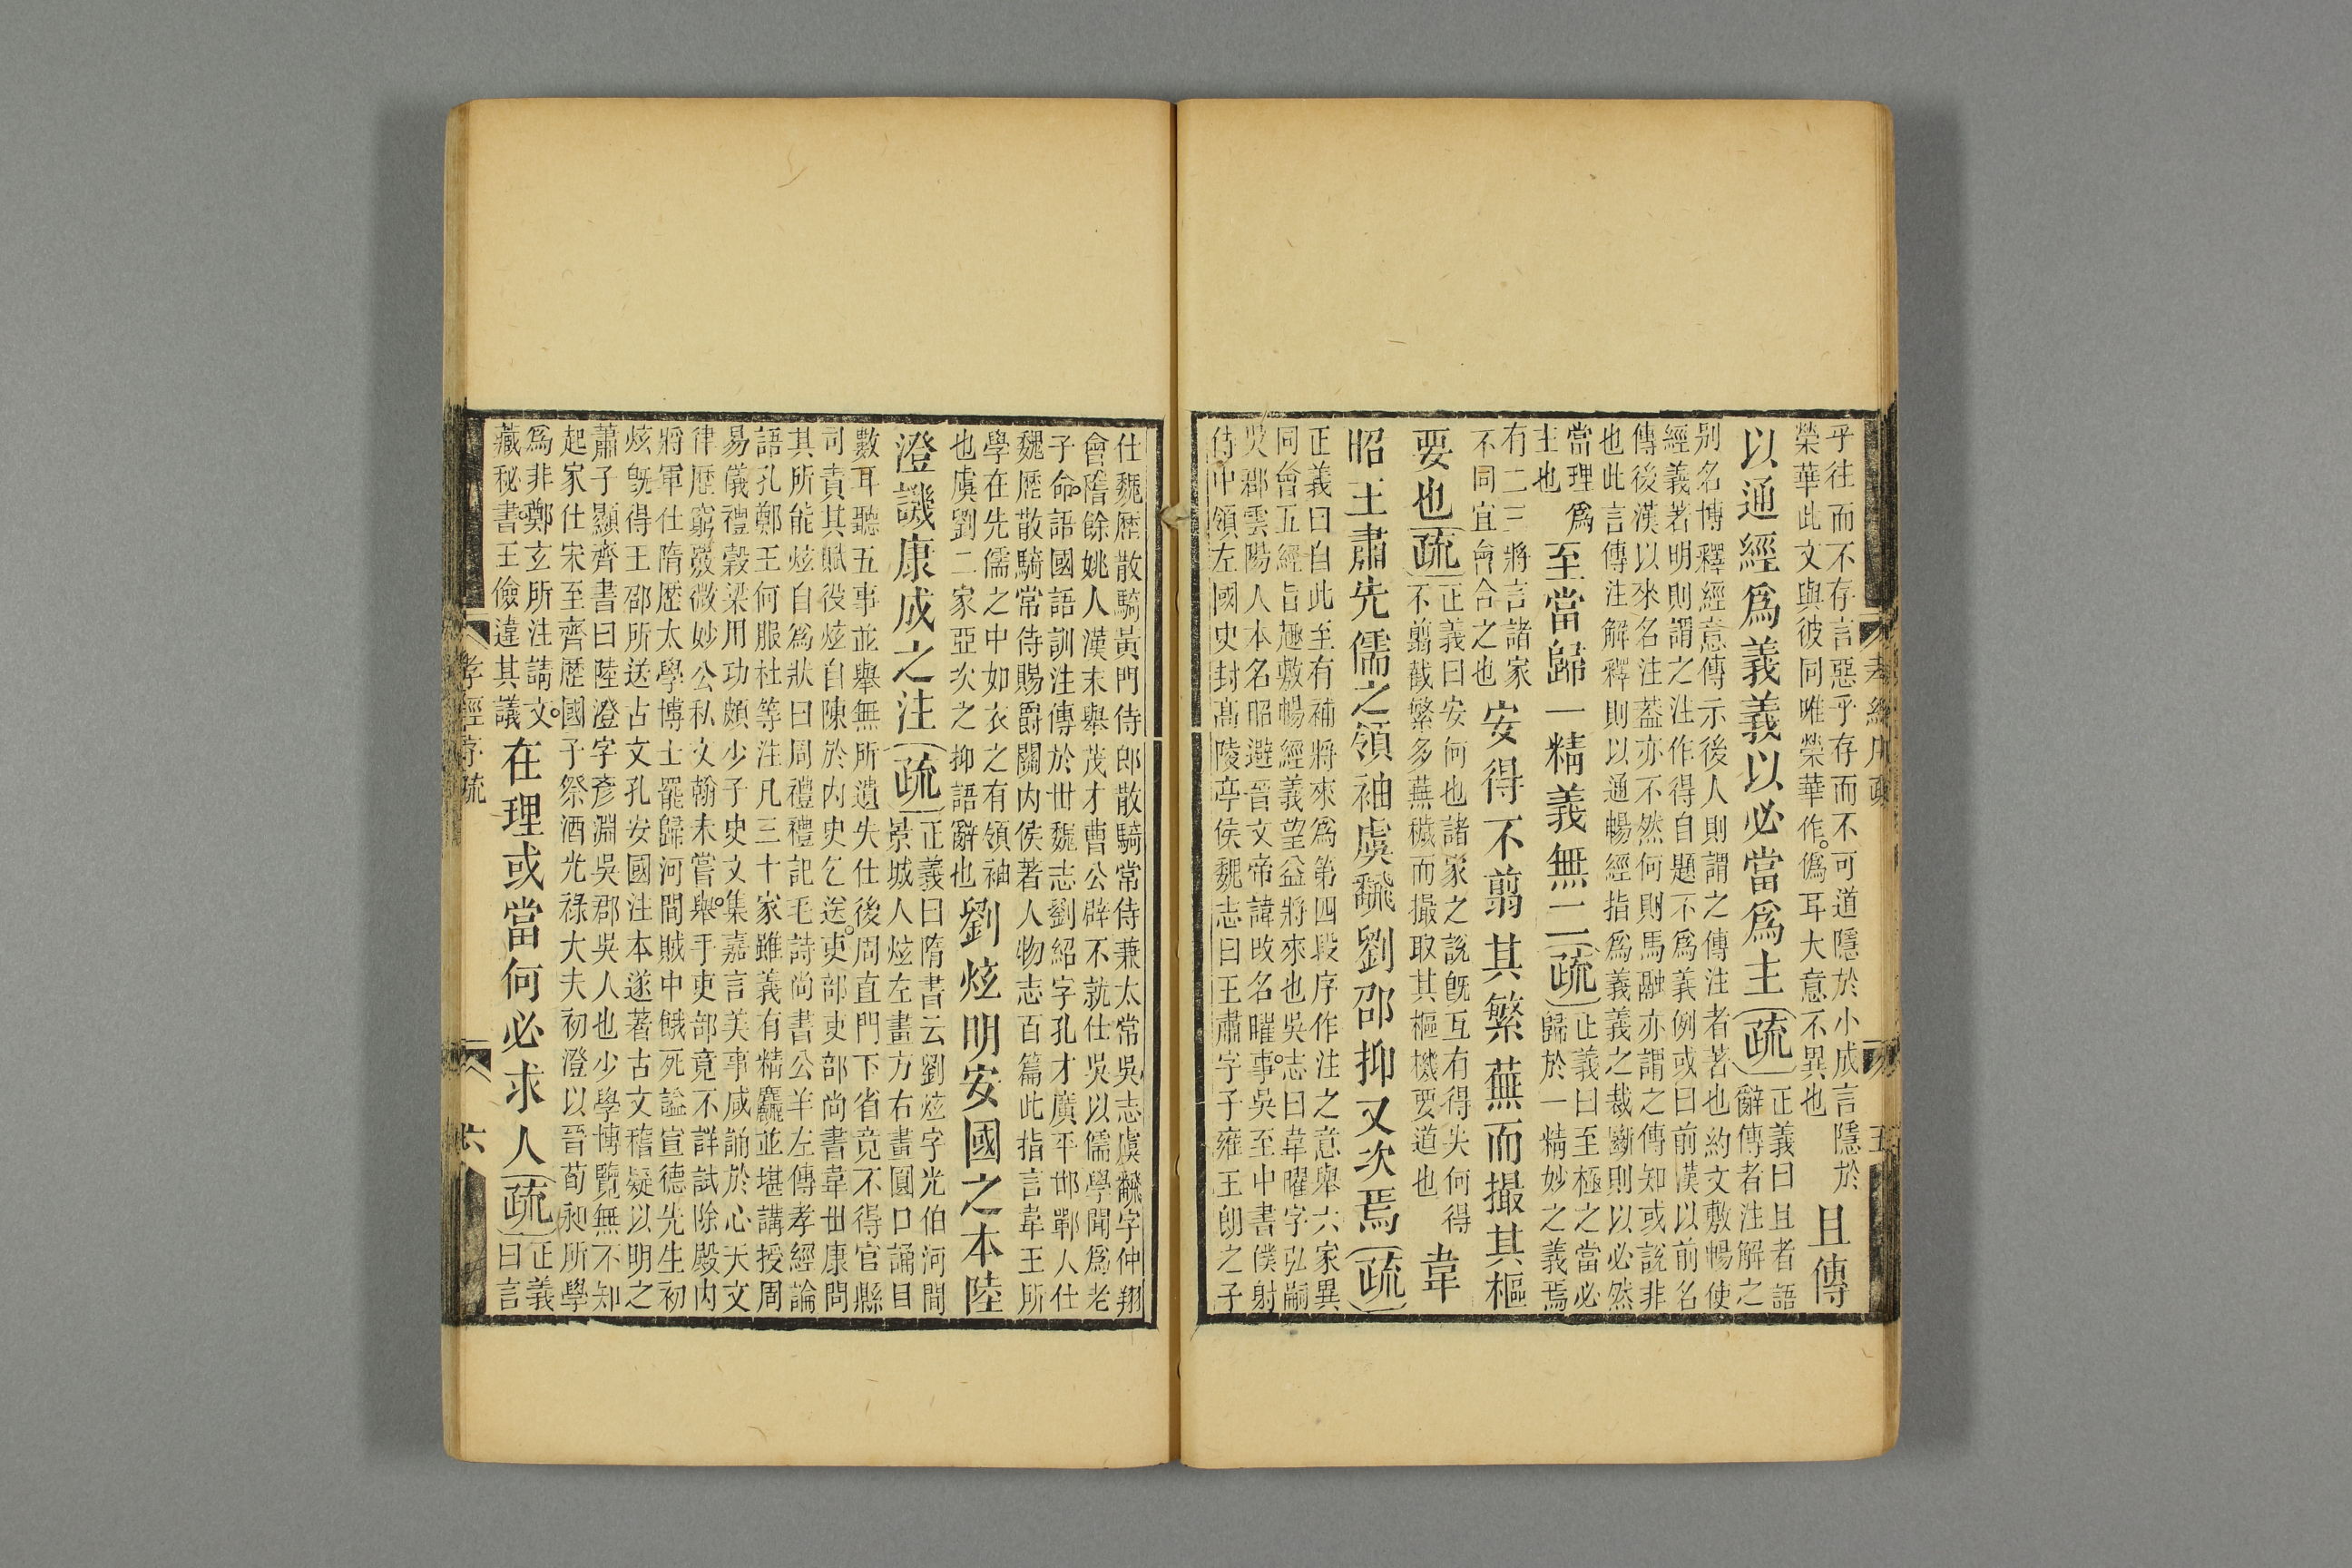 乎往而不存言惡乎存而不可道隱於小成言隱於
榮華此文與彼同唯榮華作僞耳大意不異也
且傳
以通經爲義義以必當爲主疏
正義曰且者語
辭傳者注解之
别名博釋經意傳示後人則謂之傳注者著也約文敷暢使
經義著明則謂之注作得自題不爲義例或曰前漢以前名
傳後漢以來名注葢亦不然何則馬融亦謂之傳知或説非
也此言傳注解釋則以通暢經指爲義義之裁斷則以必然
當理爲
主也
至當歸一精義無二疏
正義曰至極之當必
歸於一精妙之義焉
有二三將言諸家
不同宜會合之也
安得不翦其繁蕪而撮其樞
要也疏
正義曰安何也諸家之説旣互有得失何得
不翦截繁多蕪穢而撮取其樞機要道也
韋
昭王肅先儒之領袖虞飜劉邵抑又次焉疏
正義曰自此至有補將來爲第四段序作注之意舉六家異
同會五經旨趣敷暢經義望益將來也吳志曰韋曜字弘嗣
吳郡雲陽人本名昭避晉文帝諱改名曜事吳至中書僕射
侍中領左國史封髙陵亭侯魏志曰王肅字子雍王朗之子
孝經序疏
五
仕魏歷散騎黃門侍郎散騎常侍兼太常吳志虞飜字仲翔
會稽餘姚人漢末舉茂才曹公辟不就仕吳以儒學聞爲老
子命語國語訓注傳於世魏志劉紹字孔才廣平邯鄲人仕
魏歷散騎常侍賜爵關内侯著人物志百篇此指言韋王所
學在先儒之中如衣之有領袖
也虞劉二家亞次之抑語辭也
劉炫明安國之本陸
澄譏康成之注疏
正義曰隋書云劉炫字光伯河間
景城人炫左畫方右畫圓口誦目
數耳聽五事並舉無所遺失仕後周直門下省竟不得官縣
司責其賦役炫自陳於内史乞送吏部吏部尚書韋世康問
其所能炫自爲狀曰周禮禮記毛詩尚書公羊左傳孝經論
語孔鄭王何服杜等注凡三十家雖義有精麤並堪講授周
易儀禮穀梁用功頗少子史文集嘉言美事咸誦於心天文
律歷窮覈微妙公私文翰未嘗舉手吏部竟不詳試除殿内
將軍仕隋歷太學博士罷歸河間賊中餓死謚宣德先生初
炫旣得王邵所送古文孔安國注本遂著古文稽疑以明之
蕭子顯齊書曰陸澄字彥淵吳郡吳人也少學博覽無不知
起家仕宋至齊歷國子祭酒光祿大夫初澄以晉荀昶所學
爲非鄭玄所注請文
藏秘書王儉違其議
在理或當何必求人疏
正義
曰言
孝經序疏
六